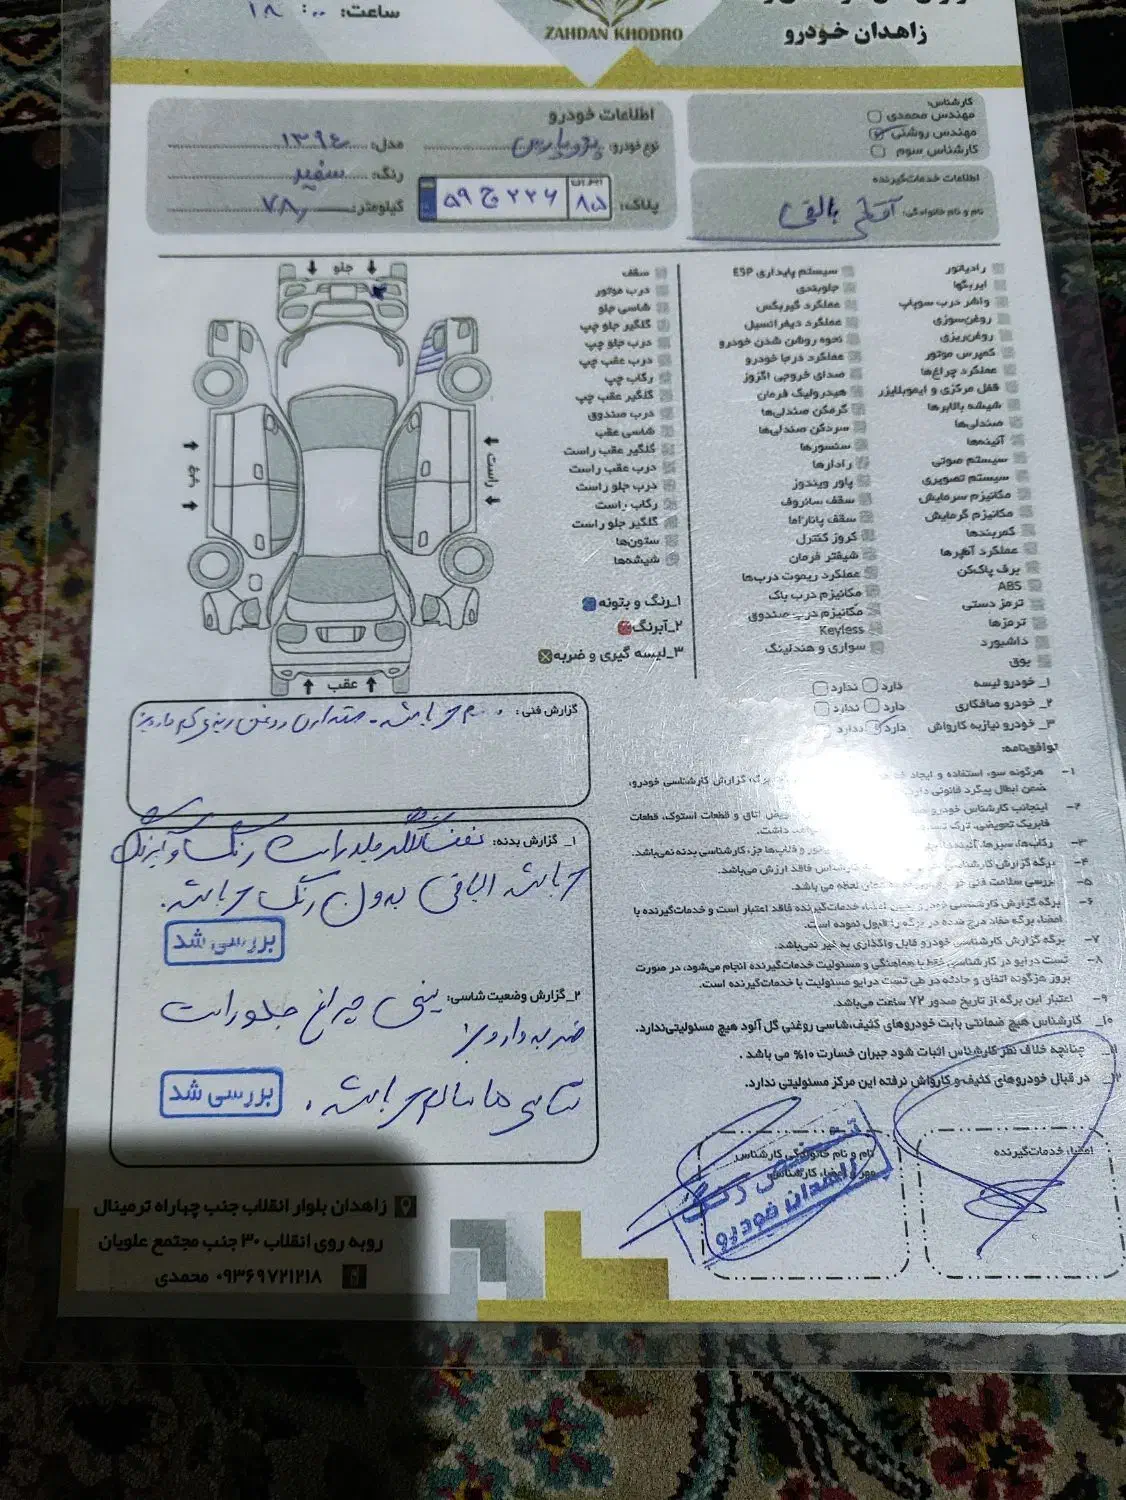 ساعت: ۱۸:۰۰
ZAHDAN KHODRO
زاهدان خودرو
کارشناس:
مهندس محمدی
مهندس روشنی
کارشناس سوم
اطلاعات خدمات‌گیرنده
نام و نام خانوادگی: آقای
اطلاعات خودرو
نوع خودرو: پژو پارس
مدل: ۱۳۹۴
رنگ: سفید
پلاک: ایران ۸۵ ۲۲۶ ج ۵۹
کیلومتر: ۷۸
رادیاتور
ایربگ‌ها
واشر درب سوپاپ
روغن‌سوزی
روغن‌ریزی
کمپرس موتور
عملکرد چراغ‌ها
قفل مرکزی و ایموبلایزر
شیشه بالابرها
صندلی‌ها
آئینه‌ها
سیستم صوتی
سیستم تصویری
مکانیزم سرمایش
مکانیزم گرمایش
کمربندها
عملکرد آمپرها
برف پاک‌کن
ABS
ترمز دستی
ترمزها
داشبورد
بوق
سیستم پایداری ESP
جلوبندی
عملکرد گیربکس
عملکرد دیفرانسیل
نحوه روشن شدن خودرو
عملکرد درجا خودرو
صدای خروجی اگزوز
هیدرولیک فرمان
گرمکن صندلی‌ها
سردکن صندلی‌ها
سنسورها
رادارها
پاور ویندوز
سقف سانروف
سقف پاناراما
کروز کنترل
شیفتر فرمان
عملکرد ریموت درب‌ها
مکانیزم درب باک
مکانیزم درب صندوق
Keyless
سواری و هندلینگ
سقف
درب موتور
شاسی جلو
گلگیر جلو چپ
درب جلو چپ
درب عقب چپ
رکاب چپ
گلگیر عقب چپ
درب صندوق
شاسی عقب
گلگیر عقب راست
درب عقب راست
درب جلو راست
رکاب راست
گلگیر جلو راست
ستون‌ها
شیشه‌ها
۱_رنگ و بتونه
۲_آبرنگ
۳_لیسه گیری و ضربه
جلو
چپ
راست
عقب
۱_ خودرو لیسه دارد ندارد
۲_ خودرو صافکاری دارد ندارد
۳_ خودرو نیاز به کارواش دارد ندارد
توافق‌نامه:
۱- هرگونه سوء استفاده و ایجاد برگه گزارش کارشناسی خودرو،
ضمن ابطال پیگرد قانونی دارد
۲- اینجانب کارشناس خودرو تعویض اتاق و قطعات استوک، قطعات
فابریک تعویضی، ترک داشت.
۳- رکاب‌ها، سپرها، آئینه‌ها و قاب‌ها جز، کارشناسی بدنه نمی‌باشد.
۴- برگه گزارش کارشناسی فاقد ارزش می‌باشد.
۵- بررسی سلامت فنی خودرو لحظه می باشد.
۶- برگه گزارش کارشناسی خودرو بدون امضاء خدمات‌گیرنده فاقد اعتبار است و خدمات‌گیرنده با
امضا، برگه مفاد درج شده در برگه را قبول نموده است.
۷- برگه گزارش کارشناسی خودرو قابل واگذاری به غیر نمی‌باشد.
۸- تست درایو در کارشناسی فقط با هماهنگی و مسئولیت خدمات‌گیرنده انجام می‌شود، در صورت
بروز هرگونه اتفاق و حادثه در طی تست درایو مسئولیت با خدمات‌گیرنده است.
۹- اعتبار این برگه از تاریخ صدور ۷۲ ساعت می‌باشد.
۱۰_ کارشناس هیچ ضمانتی بابت خودروهای کثیف،شاسی روغنی گل آلود هیچ مسئولیتی‌ندارد.
۱۱_ چنانچه خلاف نظر کارشناس اثبات شود جبران خسارت ۱۰% می باشد .
۱۲_ در قبال خودروهای کثیف و کارواش نرفته این مرکز مسئولیتی ندارد.
گزارش فنی: می باشد. مقداری روغن ریزی کم دارد
۱_ گزارش بدنه: گلگیر جلو راست رنگ و آبرنگ
می باشد الباقی بدون رنگ می باشد.
بررسی شد
۲_گزارش وضعیت شاسی: سینی چراغ جلو راست
ضربه دارد
شاسی ها سالم می باشد.
بررسی شد
امضاء خدمات‌گیرنده
نام و نام خانوادگی کارشناس
مهر و امضاء کارشناس
زاهدان خودرو
زاهدان بلوار انقلاب جنب چهاراه ترمینال
روبه روی انقلاب ۳۰ جنب مجتمع علویان
۰۹۳۶۹۷۲۱۲۱۸ محمدی